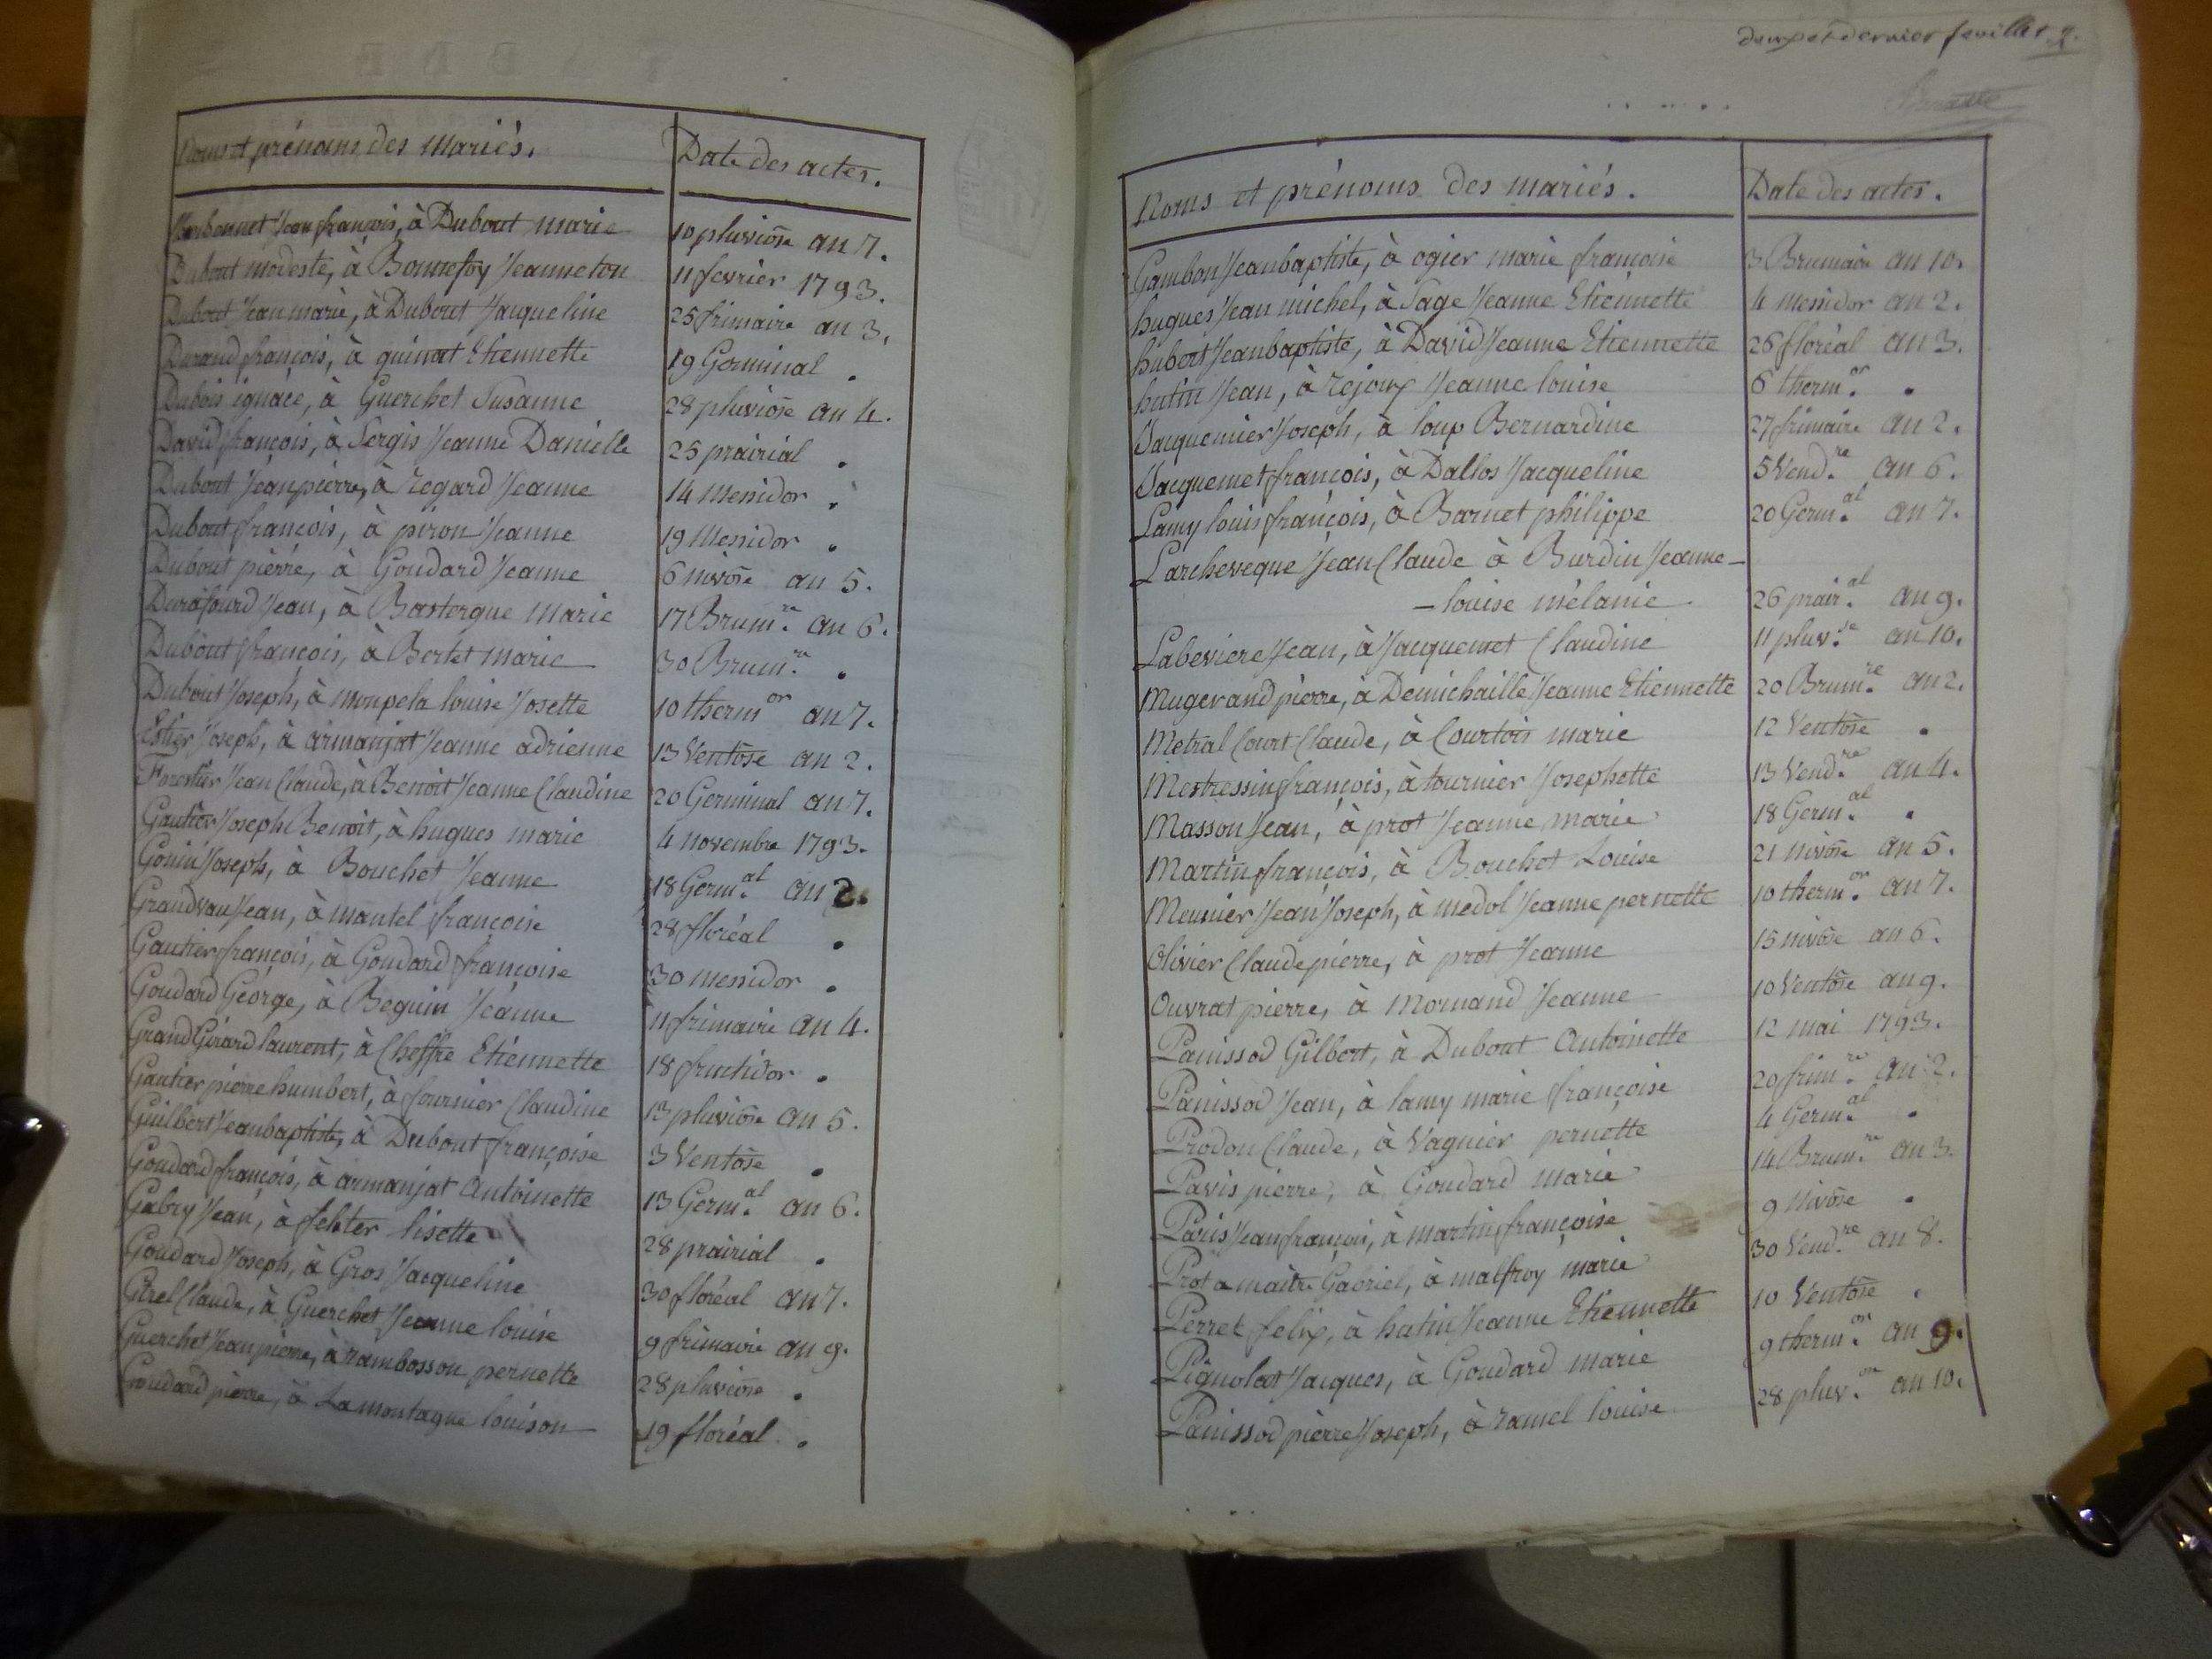 Noms et prénoms des mariés. Date des actes.
Jean françois, à Dubout marie 10 pluviôse an 7.
Dubout modeste, à Bonnefoy Jeanneton 11 fevrier 1793.
Dubout Jean marie, à Dubout Jacqueline 25 frimaire an 3.
Durand françois, à quinat Etiennette 19 Germinal .
Dubois ignace, à Guerchet Susanne 28 pluviôse an 4.
David françois, à Sergis Jeanne Danielle 25 prairial .
Dubout Jean pierre, à regard Jeanne 14 Messidor .
Dubout françois, à piron Jeanne 19 Messidor .
Dubout pierre, à Goudard Jeanne 6 nivôse an 5.
Durafourd Jean, à Bastergue Marie 17 Brum.re an 6.
Dubout françois, à Bertet marie 30 Brum.re .
Dubout Joseph, à monpela louise Josette 10 therm.or an 7.
Estier Joseph, à armanjat Jeanne adrienne 13 Ventôse an 2.
Forestier Jean Claude, à Benoit Jeanne Claudine 20 Germinal an 7.
Gautier Joseph Benoit, à hugues marie 4 novembre 1793.
Gonin Joseph, à Bouchet Jeanne 18 Germ.al an 2.
Grandvau Jean, à mantel françoise 28 floréal .
Gautier françois, à Goudard françoise 30 messidor .
Goudard George, à Beguin Jeanne 11 frimaire an 4.
Grand Girard laurent, à Cheffre Etiennette 18 fructidor .
Gautier pierre humbert, à fournier Claudine 13 pluviôse an 5.
Guilbert Jean baptiste, à Dubout françoise 3 Ventôse .
Goudard françois, à armanjat Antoinette 13 Germ.al an 6.
Gabry Jean, à felster lisette 28 prairial .
Goudard Joseph, à Gros Jacqueline 30 floréal an 7.
Girel Claude, à Guerchet Jeanne louise 9 frimaire an 9.
Guerchet Jean pierre, à rambosson pernette 28 pluviôse .
Goudard pierre, à Lamontagne louison 19 floréal .
dernier feuillet
Noms et prénoms des mariés. Date des actes.
Gambon Jean baptiste, à ogier marie françoise 3 Brumaire an 10.
hugues Jean michel, à Sage Jeanne Etiennette 4 messidor an 2.
hubert Jean baptiste, à David Jeanne Etiennette 26 floréal an 3.
hutin Jean, à rejoux Jeanne louise 6 therm.or .
Jacquemier Joseph, à loup Bernardine 27 frimaire an 2.
Jacquemet françois, à Dallos Jacqueline 5 Vend.re an 6.
Lamy louis françois, à Barnet philippe 20 Germ.al an 7.
Larcheveque Jean Claude à Burdin Jeanne-
-louise mélanie 26 prair.al an 9.
Labeviere Jean, à Jacquemet Claudine 11 pluv.se an 10.
Mugerand pierre, à Demichaille Jeanne Etiennette 20 Brum.re an 2.
Metral Court Claude, à Courtois marie 12 Ventôse .
Mestressin françois, à tournier Josephette 13 Vend.re an 4.
Masson Jean, à prot Jeanne marie 18 Germ.al .
Martin françois, à Bouchet Louise 21 nivôse an 5.
Meunier Jean Joseph, à medol Jeanne pernette 10 therm.or an 7.
Olivier Claude pierre, à prot Jeanne 15 nivôse an 6.
Ouvrat pierre, à Mornand Jeanne 10 Ventôse an 9.
Panissod Gilbert, à Dubout Antoinette 12 mai 1793.
Panissod Jean, à lamy marie françoise 20 frim.re an 2.
Prodon Claude, à Vagnier pernette 4 Germ.al .
Pavis pierre, à Goudard marie 14 Brum.re an 3.
Paris Jean françois, à martin françoise 9 Nivôse .
Prot a maitre Gabriel, à malfroy marie 30 Vend.re an 8.
Perret felix, à hutin Jeanne Etiennette 10 Ventôse .
Pignolet Jacques, à Goudard marie 9 therm.or an 9.
Panissod pierre Joseph, à ramel louise 28 pluv.se an 10.